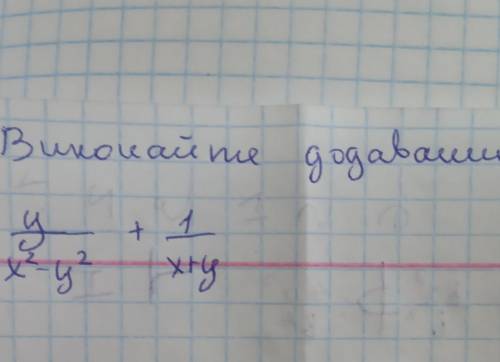 Виконайте додавання
y/(x²-y²) + 1/(x+y)